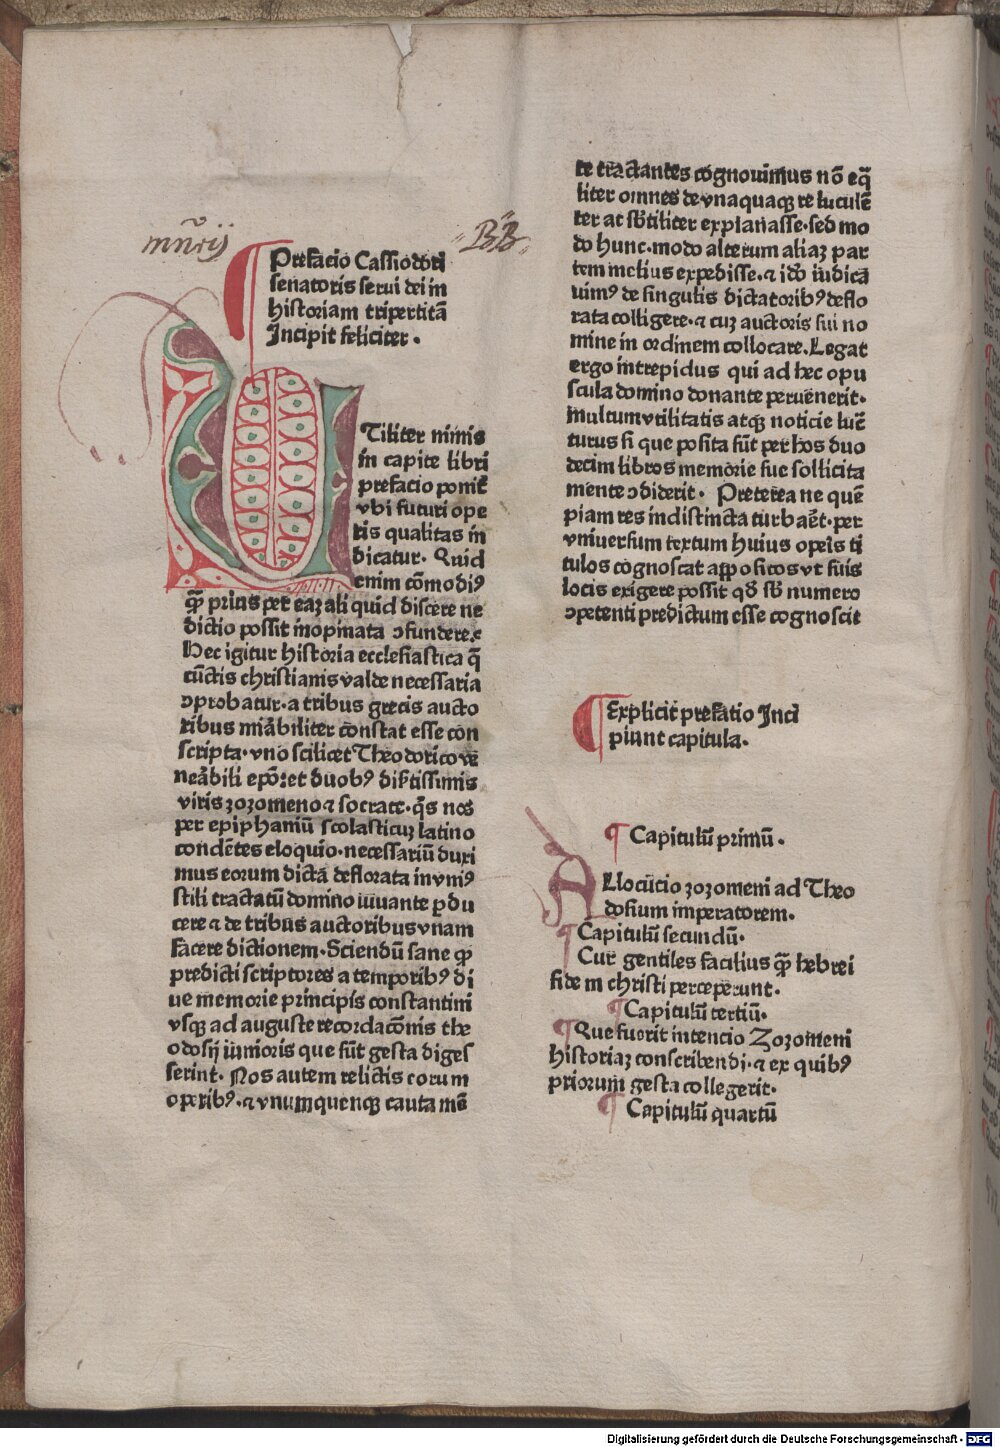 BB
Prefacio Cassiodori
senatoris serui dei in
historiam tripertitā
Incipit feliciter .
UTiliter nimis
in capite libri
prefacio ponit̄
vbi futuri ope
ris qualitas in
dicatur. Quid
enim cōmodiꝰ
qꝫ̄ prius per eaꝫ ali quid discere ne
dictio possit inopinata ↄfundere.
Hec igitur historia ecclesiastica q̄
cūctis christianis valde necessaria
ↄprobatur. a tribus grecis aucto
ribus mirābiliter constat esse con
scripta. vno scilicet Theodorico ve
nerābili ep̄o. et duobꝰ disertissimis
viris zozomeno ⁊ socrate. q̄s nos
per epiphaniū scolasticuꝫ latino
condētes eloquio. necessariū duxi
mus eorum dicta deflorata in vniꝰ
stili tractatū domino iuuante ꝑdu
cere ⁊ de tribus auctoribus vnam
facere dictionem. Sciendū sane ꝙ
predicti scriptores a temporibꝰ di
ue memorie principis constantini
vsqꝫ ad auguste recordacōnis the
odosij iunioris que sūt gesta diges
serint. Nos autem relictis eorum
operibꝰ. ⁊ vnumquenqꝫ cauta mē
te tractantes cognouimus nō eq̄
liter omnes de vnaquaqꝫ re luculē
ter ac sb̄tiliter explanasse. sed mo
do hunc. modo alterum aliaꝫ par
tem melius expedisse. ⁊ id̄o iudica
uimꝰ de singulis dictatoribꝰ deflo
rata colligere. ⁊ cuꝫ auctoris sui no
mine in ordinem collocare. Legat
ergo intrepidus qui ad hec opu
scula domino donante peruenerit.
multum vtilitatis atqꝫ noticie luc̄
turus si que posita sūt per hos duo
decim libros memorie sue sollicita
mente ↄdiderit. Preterea ne quē
piam res indistincta turbaret. per
vniuersum textum huius operis ti
tulos cognoscat appositos vt suis
locis exigere possit qd̄ sb̄ numero
ↄpetenti predictum esse cognoscit
¶ Explicit prefatio Inci
piunt capitula.
¶ Capitulū primū .
Allocūcio zozomeni ad Theo
dosium imperatorem.
¶ Capitulū secundū.
Cur gentiles facilius qꝫ̄ hebrei
fidem christi perceperunt.
¶ Capitulū tertiū.
¶ Que fuerit intencio Zozomeni
historiaꝫ conscribendi. ⁊ ex quibꝰ
priorum gesta collegerit.
¶ Capitulū quartū
Digitalisierung gefördert durch die Deutsche Forschungsgemeinschaft - DFG